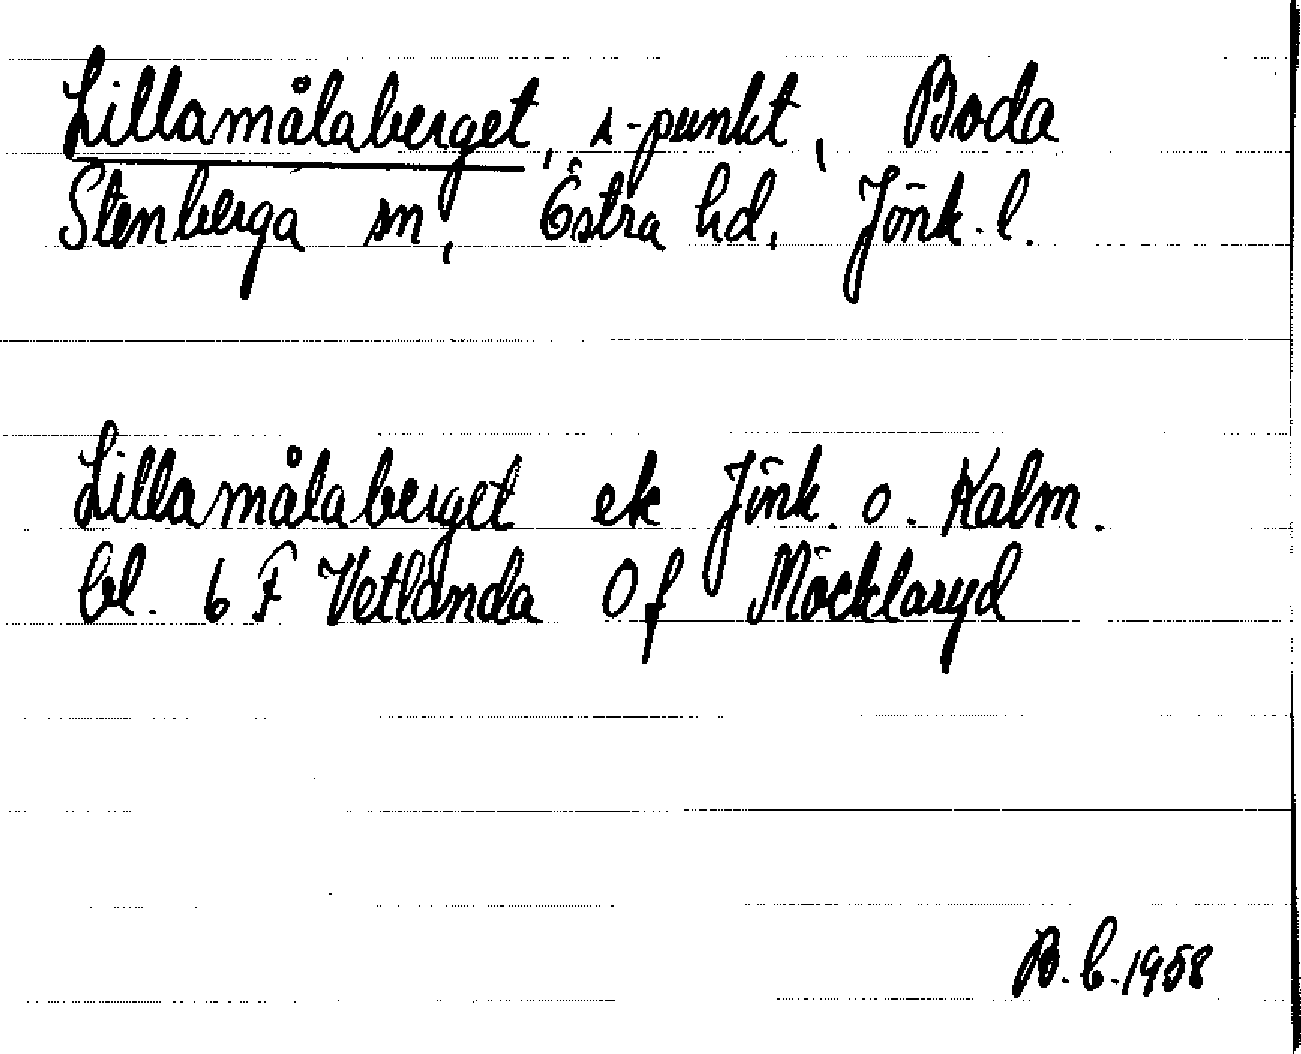 Lillamålaberget, s-punkt, Boda
Stenberga sn, Östra hd, Jönk. l.
Lillamålaberget ek Jönk. o. Kalm.
bl. 6 F Vetlanda Of Möcklaryd
B. C. 1958